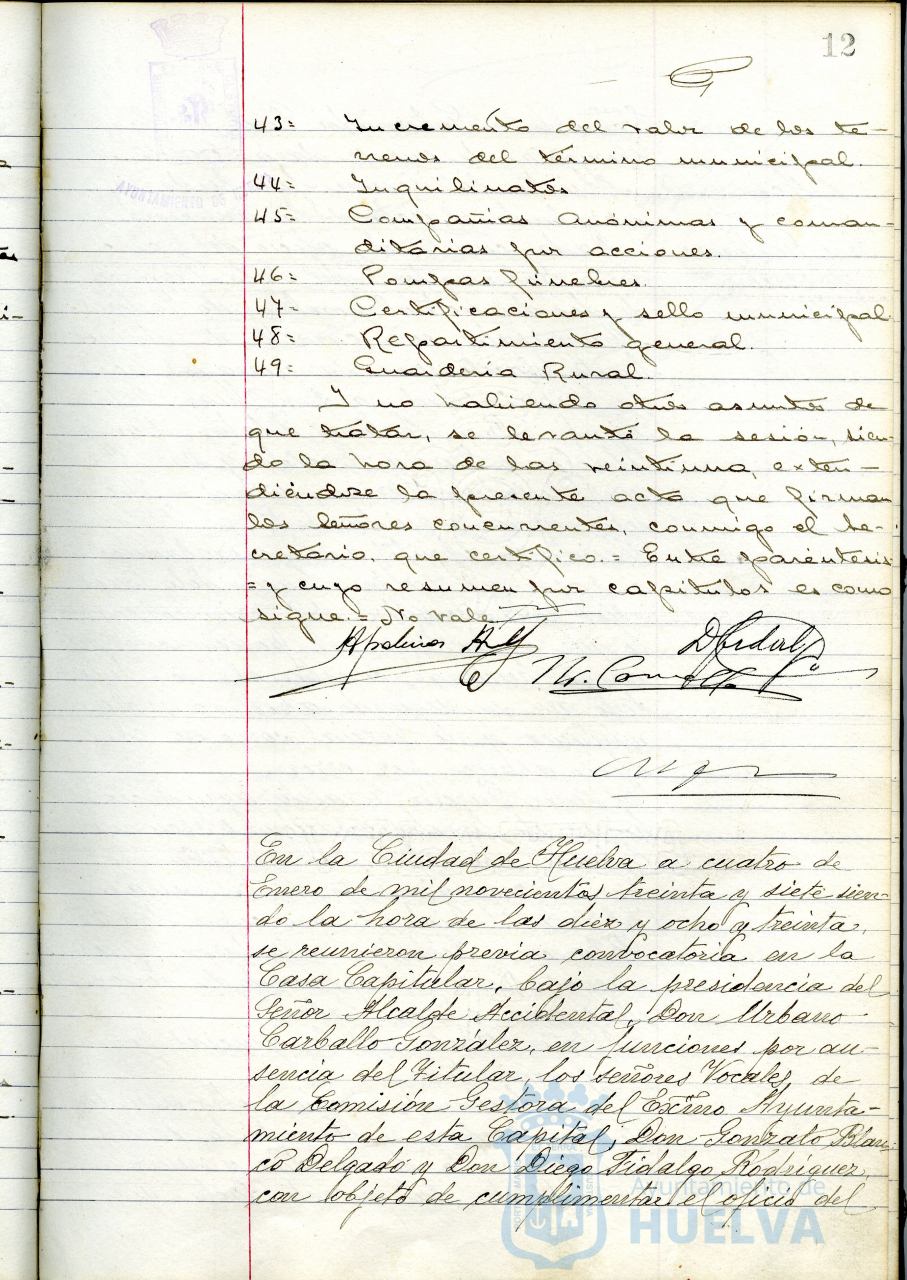 12
43= Incremento del valor de los te-
rrenos del término municipal.
44= Inquilinatos
45= Compañías anónimas y coman-
ditarias por acciones.
46= Pompas fúnebres.
47= Certificaciones y sello municipal
48= Repartimiento general.
49= Guardería Rural.
Y no habiendo otros asuntos de
que tratar, se levantó la sesión, sien-
do la hora de las veintiuna, exten-
diéndose la presente acta que firman
los señores concurrentes, conmigo el se-
cretario, que certifico.= Entre paréntesis
=y cuyo resumen por capítulos es como
sigue.= No vale
En la Ciudad de Huelva a cuatro de
Enero de mil novecientos treinta y siete sien-
do la hora de las diez y ocho y treinta,
se reunieron previa convocatoria en la
Casa Capitular, bajo la presidencia del
Señor Alcalde Accidental, Don Urbano
Carballo González, en funciones por au-
sencia del Titular, los señores Vocales de
la Comisión Gestora del Excmo Ayunta-
miento de esta Capital, Don Gonzalo Blan-
co Delgado y Don Diego Fidalgo Rodríguez,
con objeto de cumplimentar el oficio del
Ayuntamiento de
HUELVA